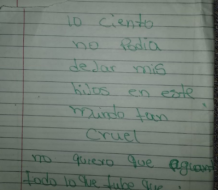 lo ciento
no podia
dejar mis
hijos en este
mundo tan
cruel
no quiero que aguan
todo lo que tube que